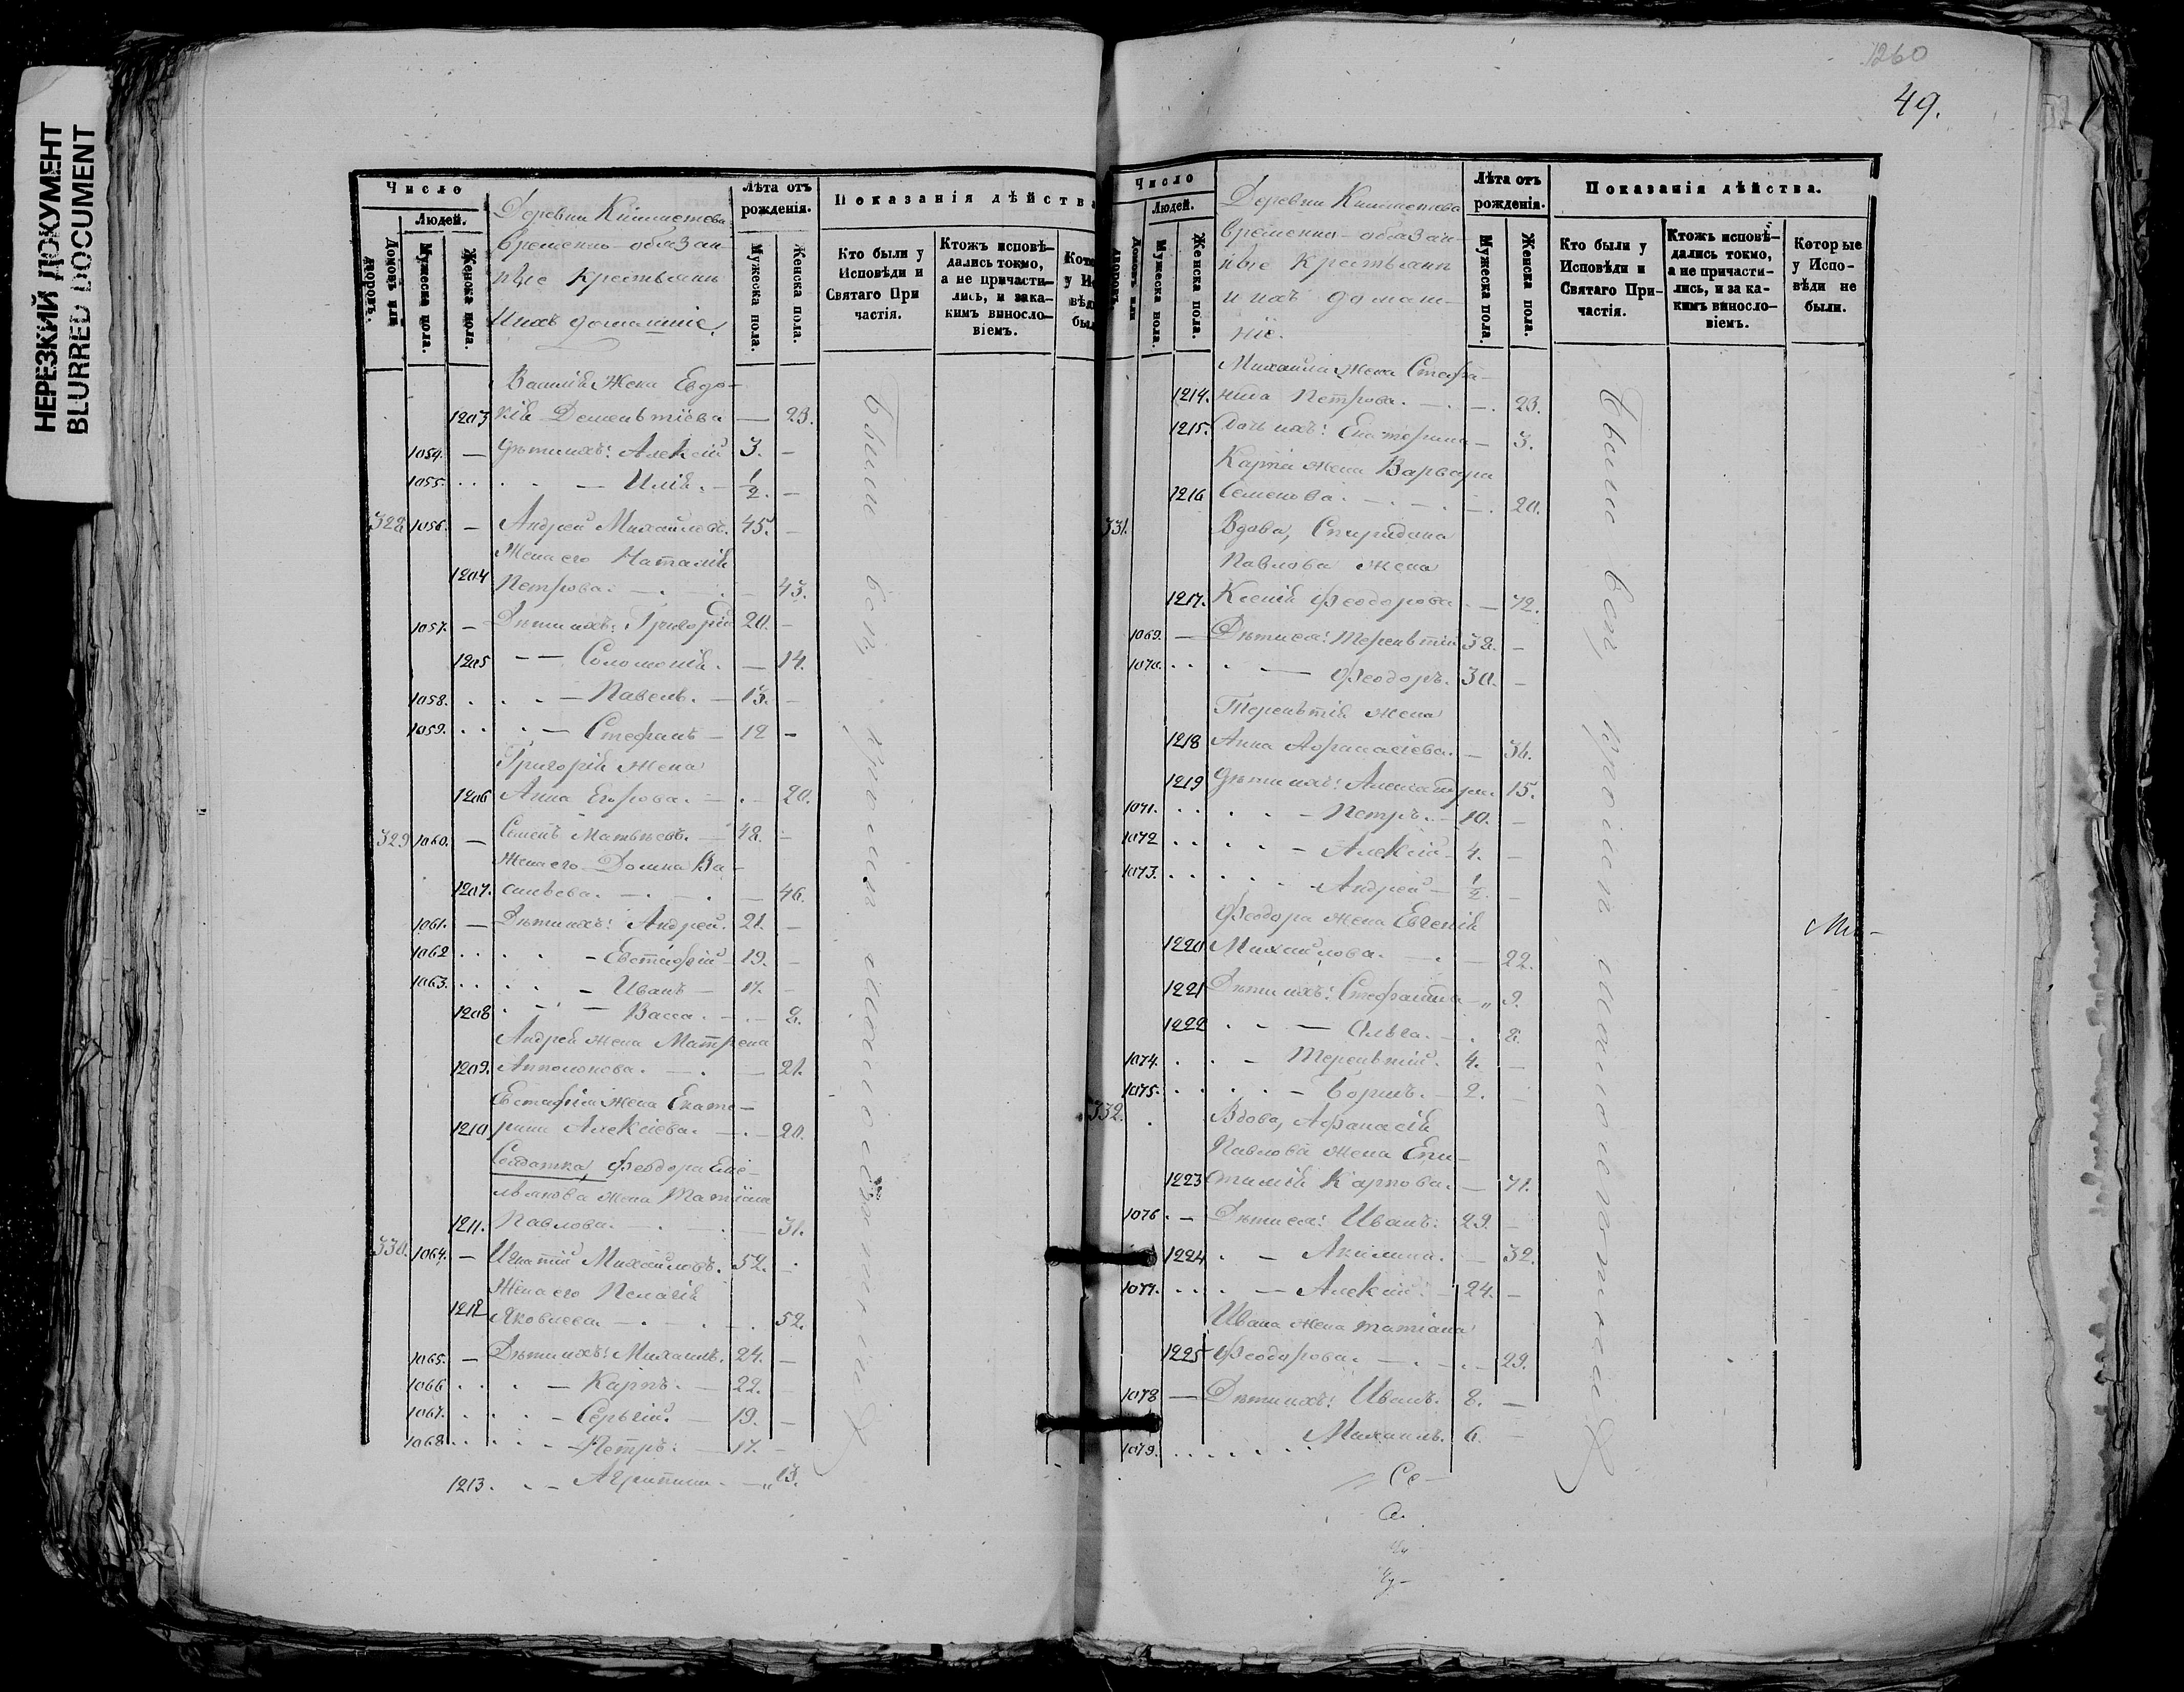 НЕРЕЗКИЙ ДОКУМЕНТ
BLURRED DOCUMENT
Число
Людей.
Домовъ или дворовъ.
Мужеска пола.
Женска пола.
Деревни
Временно-обязан-
ные Крестьяне
и ихъ домашніе.
Лѣта отъ рожденія.
Мужеска пола.
Женска пола.
Показанія дѣйства
Кто были у Исповѣди и Святаго При частія.
Ктожъ исповѣ-дались токмо, а не причасти-лись, и за ка-кимъ винослo-віемъ.
Василія Жена Евдо-
1203 кія Дементіева — 23.
1054. — Дѣти ихъ: Алексій 3. —
1055. — Илія. 1/2. —
328 1056. — Андрей Михайловъ. 45. —
Жена его Наталія
1204 Петрова. — 43.
1057. — Дѣти ихъ: Григорій 20. —
1205 — Соломонія. — 14.
1058. — Павелъ. — 13. —
1059. — Стефанъ — 12 —
Григорія Жена
1206 Анна Егорова. — 20.
329 1060. — Семенъ Матвѣевъ. — 48. —
Жена его Домна Ва-
1207. сильева. — 46.
1061. — Дѣти ихъ: Андрей. 21. —
1062 — Евстафій 19. —
1063. — Иванъ — 17. —
1208 — Васса. — 8.
Андрея жена Матрена
1209. — 21.
Евстафія жена Екате-
1210 рина Алексіева. — 20.
Солдатка, Феодора Еме-
льянова жена Татіана
1211. Павлова. — 31.
330. 1064. — Игнатій Михайловъ. 52. —
Жена его Пелагія
1212 Яковлева — 52.
1065. — Дѣти ихъ: Михаилъ. 24. —
1066 — Карпъ. — 22.
1067. — Сергій. — 19. —
1068. — Петръ. — 17. —
1213. — Агрипина. — 13.
Были всѣ, кромѣ малолѣтнихъ
1260
49.
Число
Людей.
Домовъ или дворовъ.
Мужеска пола.
Женска пола.
Деревни
Временно-обязан-
ные Крестьяне
и ихъ домаш-
ніе.
Лѣта отъ рожденія.
Мужеска пола.
Женска пола.
Показанія дѣйства.
Кто были у Исповѣди и Святаго При-частія.
Ктожъ исповѣ-дались токмо, а не причасти-лись, и за ка-кимъ винослo-віемъ.
Которые у Испо-вѣди не были.
Михаила жена Стефа-
1214. нида Петрова. — 23.
1215. Дочь ихъ: Екатерина — 3.
Карпа жена Варвара
1216 Семенова. — 20.
331. Вдова, Спиридона
Павлова жена
1217. Ксенія Феодорова — 72.
1069. — Дѣти ея: Терентій 38. —
1070. — Феодоръ. 30. —
Терентія жена
1218 Анна Афанасіева. — 36.
1219 Дѣти ихъ: Александра. 15.
1071. — Петръ. — 10. —
1072 — Алексій — 4. —
1073. — Андрей — 1/2. —
Феодора жена Евгенія
1220 Михайлова. — 22.
1221 Дѣти ихъ: Стефанида — 9.
1222 — Ольга. — 8.
1074. — Терентій. 4. —
1075. — Борисъ. — 2. —
332. Вдова, Афанасія
Павлова жена Епи-
1223 стимія Карпова. — 71.
1076. — Дѣти ея: Иванъ. 29. —
1224 — Акилина. — 32.
1077. — Алексій. — 24. —
Ивана жена Татіана
1225 Феодорова. — 29.
1078 — Дѣти ихъ: Иванъ. 8. —
1079. Михаилъ. 6. —
Се—
Были всѣ, кромѣ малолѣтнихъ